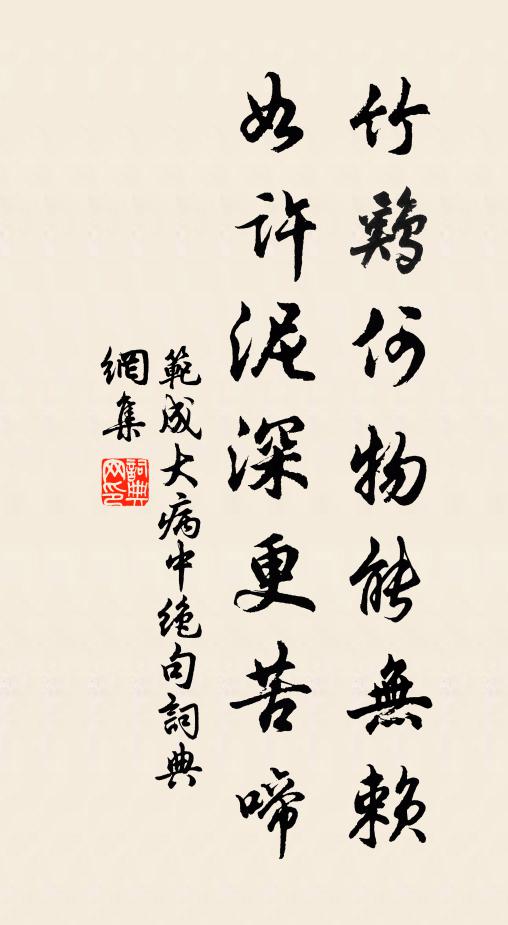 竹鷄何物能無賴
如許泥深更苦啼
範成大病中绝句詞典
網集
詞典
网印